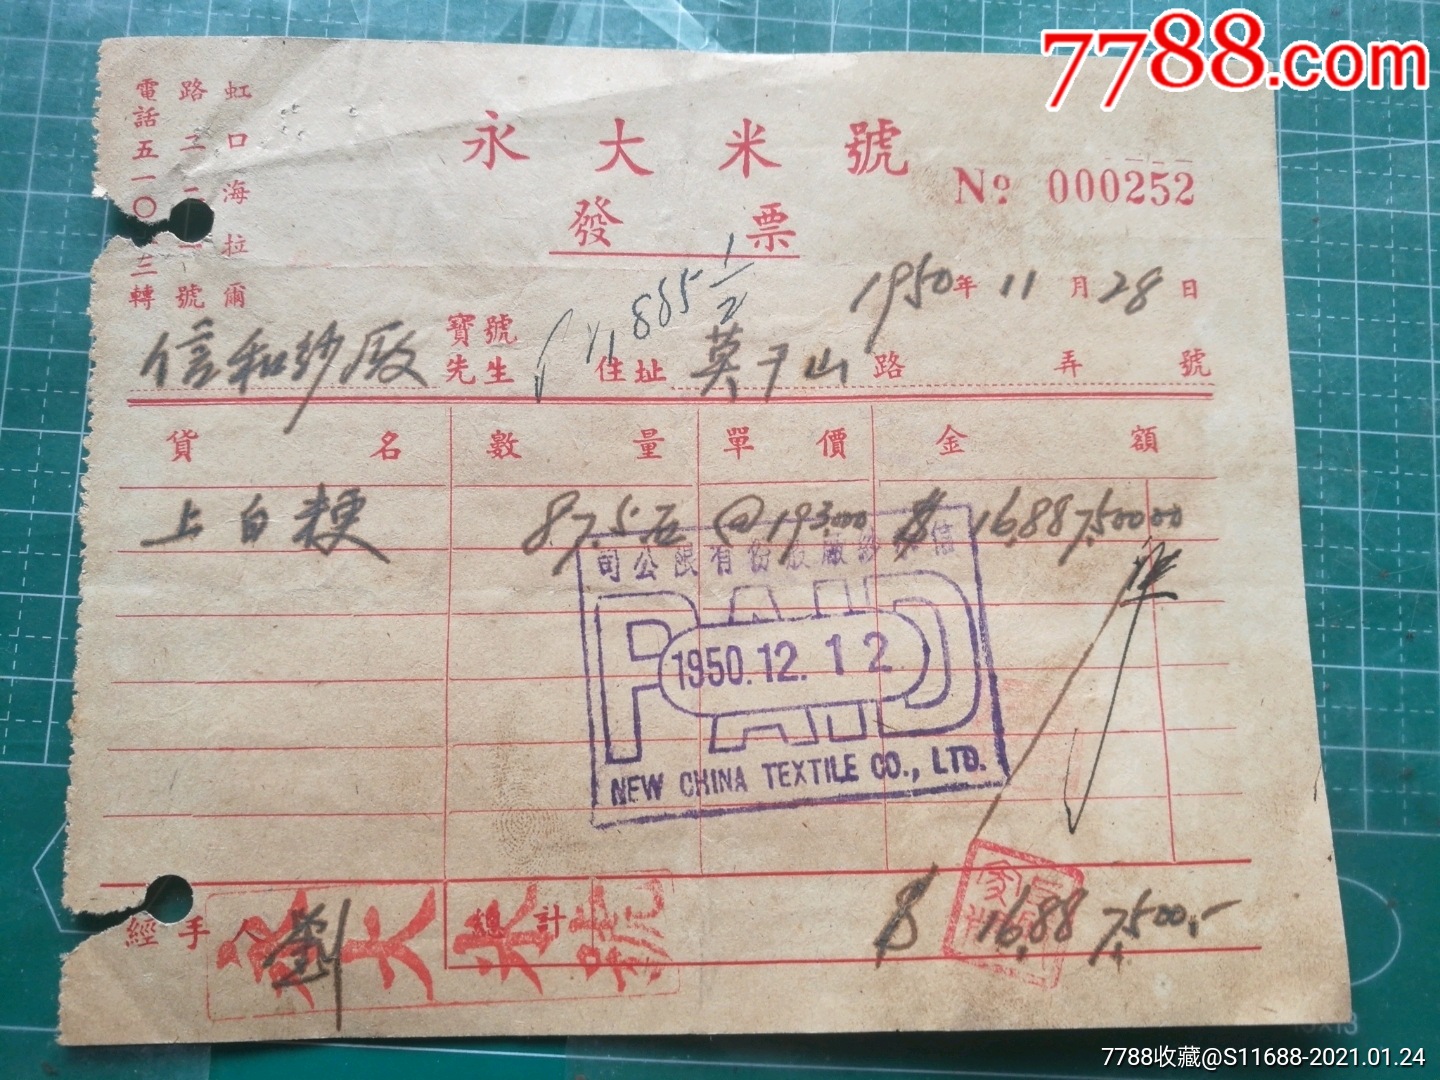 7788.com
虹口海拉爾
路二二一號
電話五一〇 三轉
永大米號
發票
No. 000252
1950年11月28日
11885 1/2
信和紗廠 寶號 先生 住址 莫干山路 弄 號
貨名 數量 單價 金額
上白粳 87.5石 @193.000 $ 16,887,500.00
信和紗廠股份有限公司
PAID
1950.12.12
NEW CHINA TEXTILE CO., LTD.
經手人 劉 總計 $ 16,887,500.-
永大米號
7788收藏@S11688-2021.01.24